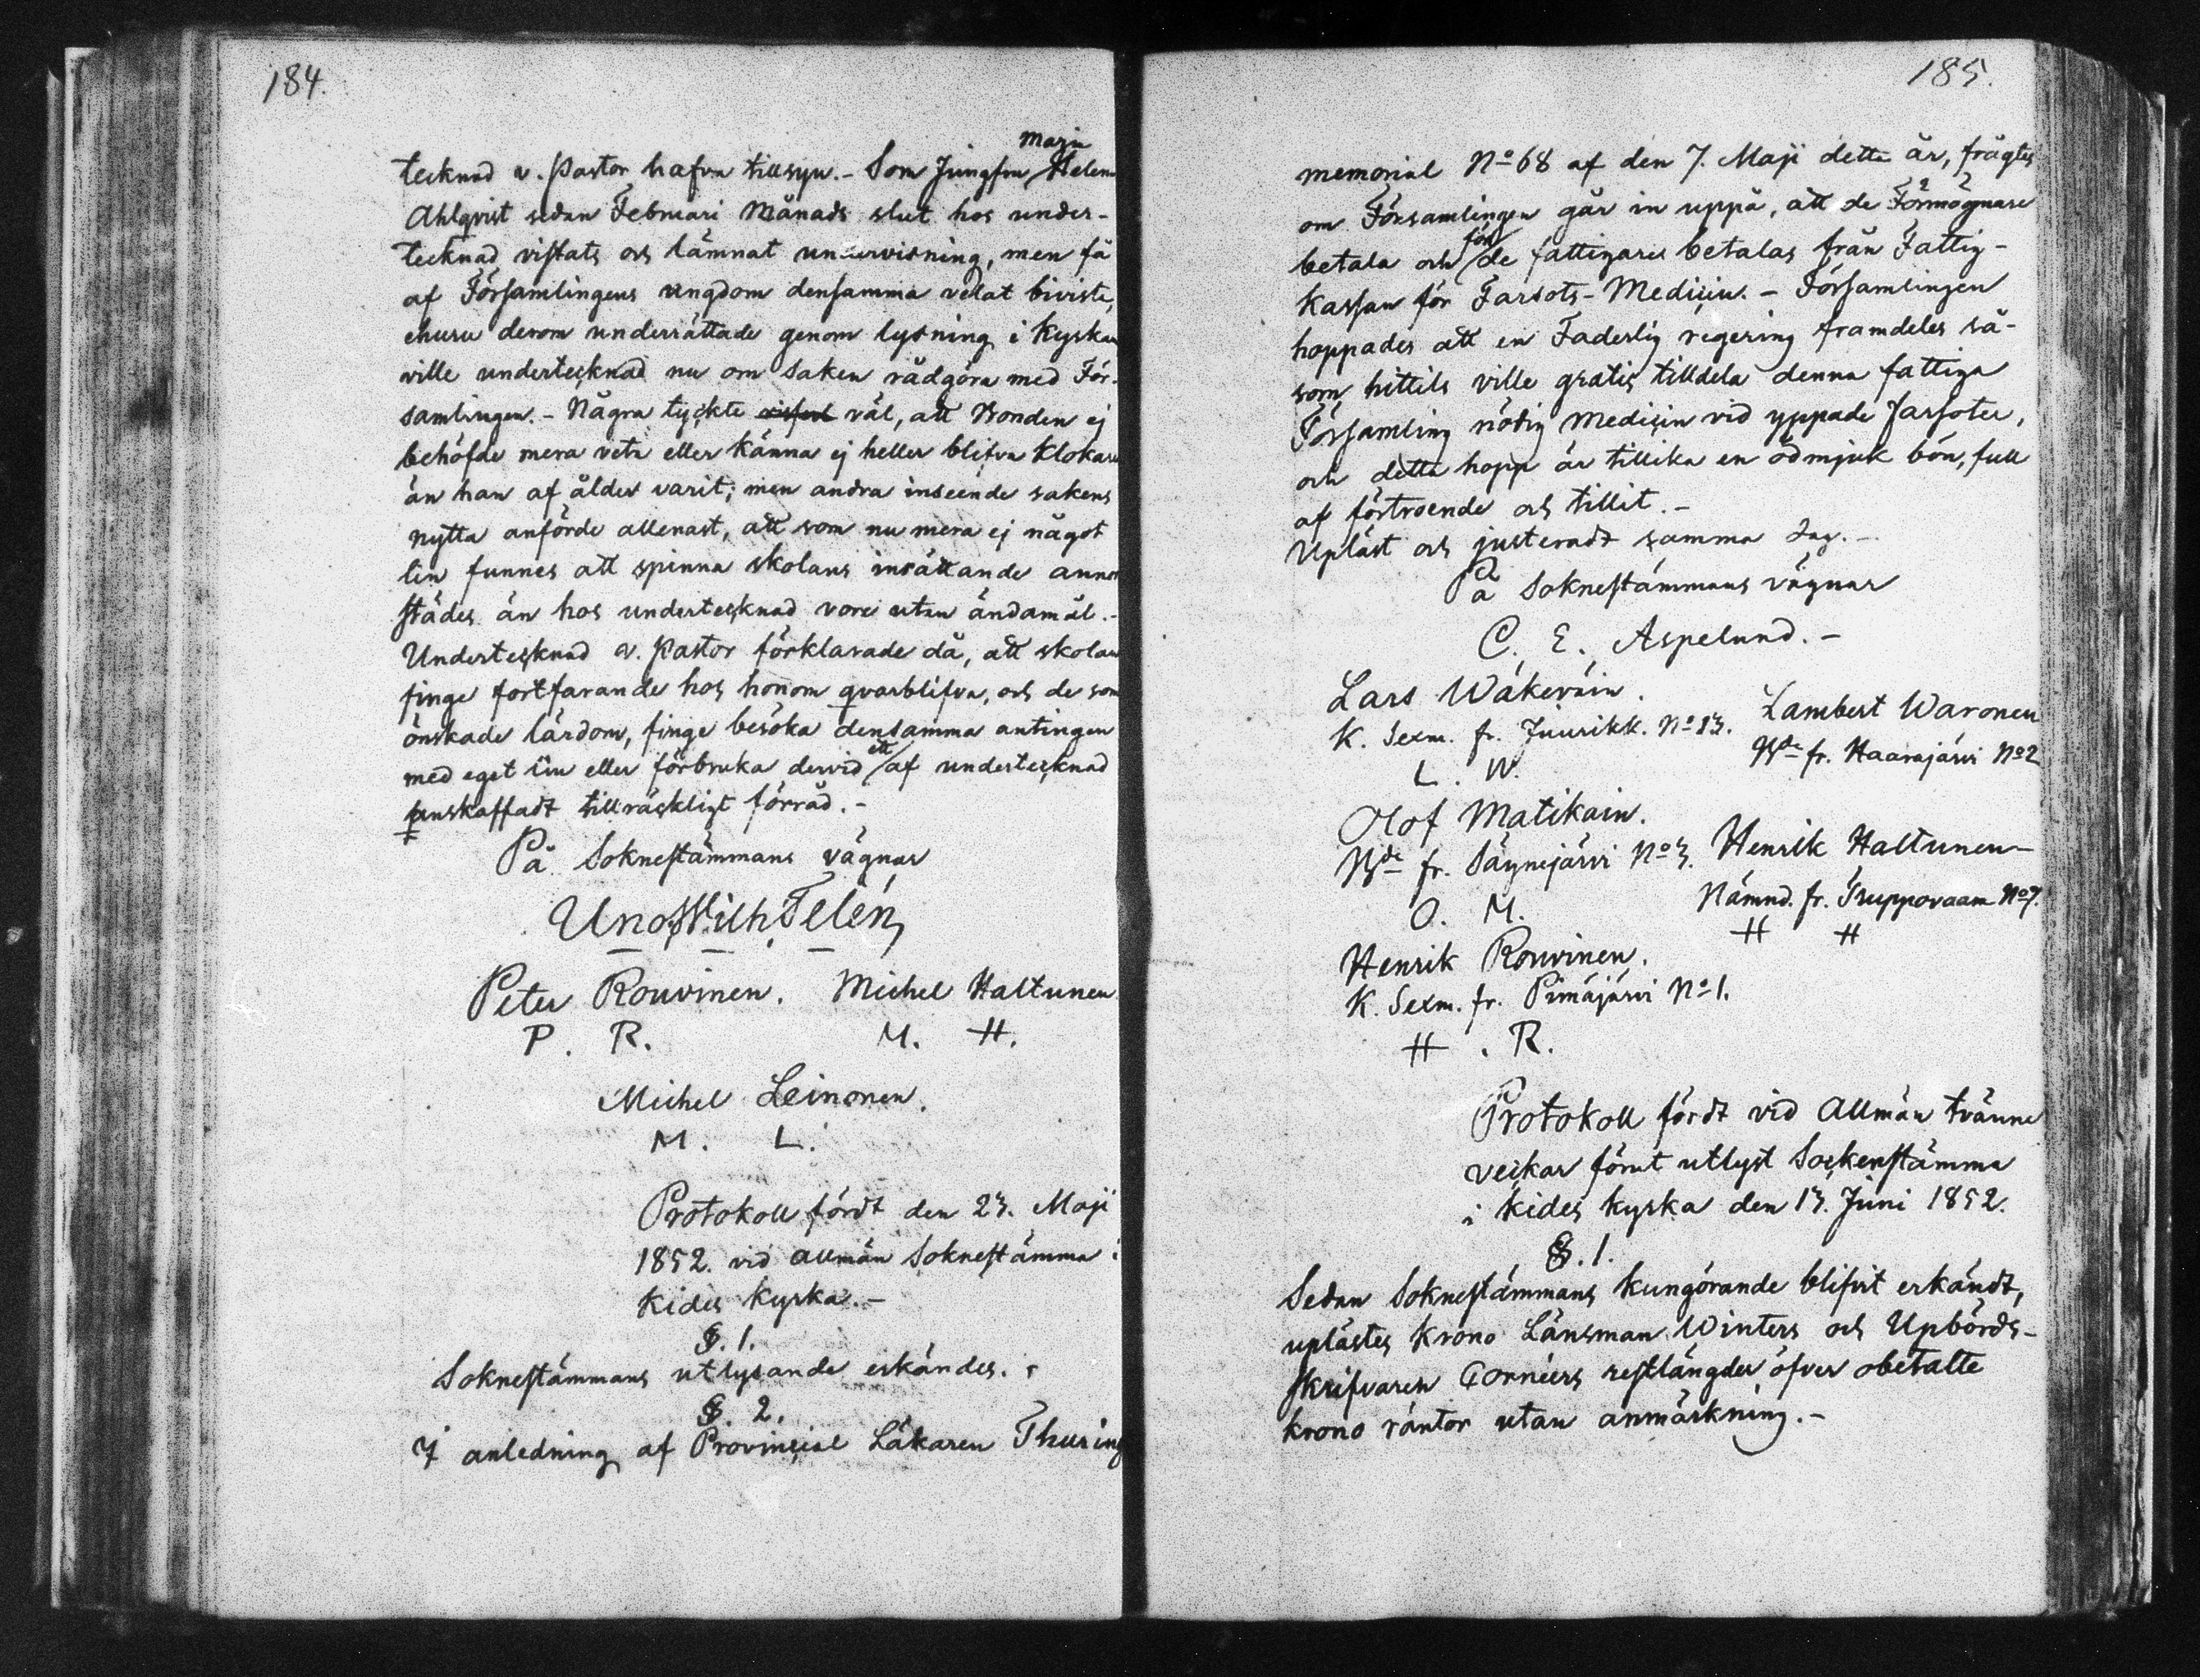 184.
tecknad v. Pastor hafva tillsyn. - Som Jungfru Maria Helena
Ahlqvist sedan Februari Månads slut hos under-
tecknad vistats och lämnat undervisning, men få
af Församlingens ungdom densamma velat bivista,
ehuru derom underrättade genom lysning i Kyrkan
ville undertecknad nu om saken rådgöra med För-
samlingen. - Några tyckte väl, att Bonden ej
behöfde mera veta eller känna ej heller blifva klokare
än han af ålder varit; men andra inseende sakens
nytta anförde allenast, att som nu mera ej något
lin funnes att spinna skolans inrättande annor
städes än hos undertecknad vore utan ändamål. -
Undertecknad v. Pastor förklarade då, att skolan
finge fortfarande hos honom qvarblifva, och de som
önskade lärdom, finge besöka densamma antingen
med eget lin eller förbruka dervid ett af undertecknad
anskaffadt tillräckligt förråd. -
På Soknestämmans vägnar
Uno Wilh. Telén
Peter Rouvinen. Michel Haltunen
P. R. M. H.
Michel Leinonen.
M. L.
Protokoll fördt den 23. Maji
1852. vid allmän Soknestämma i
Kides Kyrka. -
§. 1.
Soknestämmans utlysande erkändes. -
§. 2.
I anledning af Provincial Läkaren Thuring
185.
memorial No 68 af den 7. Maji detta år, frågtes
om Församlingen går in uppå, att de Förmögnare
betala och för de fattigare betalas från Fattig-
Kassan för Farsots-Medicin. - Församlingen
hoppades att en Faderlig regering framdeles så-
som hittils ville gratis tilldela denna fattiga
Församling nödig Medicin vid yppade farsoter,
och detta hopp är tillika en ödmjuk bön, full
af förtroende och tillit. -
Upläst och justeradt samma dag. -
På Soknestämmans vägnar
C. E. Aspelund. -
Lars Wäkeväin.
K. Sexm. fr. Juurikk. No 13.
L. W.
Lambert Waronen
Bde fr. Haarajärvi No 2
Olof Matikain.
Bde fr. Säynejärvi No 3.
O. M.
Henrik Haltunen -
Nämnd. fr. Puppovaara No 7.
H H
Henrik Rouvinen.
K. Sexm. fr. Pimäjärvi No 1.
H. R.
Protokoll fördt vid Allmän tvänne
veckor förut utlyst Sockenstämma
i Kides Kyrka den 13. Juni 1852.
§. 1.
Sedan Soknestämmans kungörande blifvit erkändt,
uplästes Krono Länsman Winters och Upbörds-
skrifvaren Corniers restlängder öfver obetalte
krono räntor utan anmärkning. -